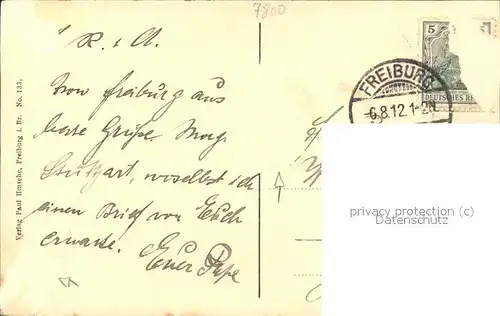 7800
L. R. & A.
Von Freiburg aus
beste Grüße. Morg.
Stuttgart, woselbst ich
einen Brief von Euch
erwarte.
Euer
Verlag Paul Hinsche, Freiburg i. Br. No. 133.
5
DEUTSCHES RE
FREIBURG
6.8.12.1-2
privacy protection (c)
Datenschutz